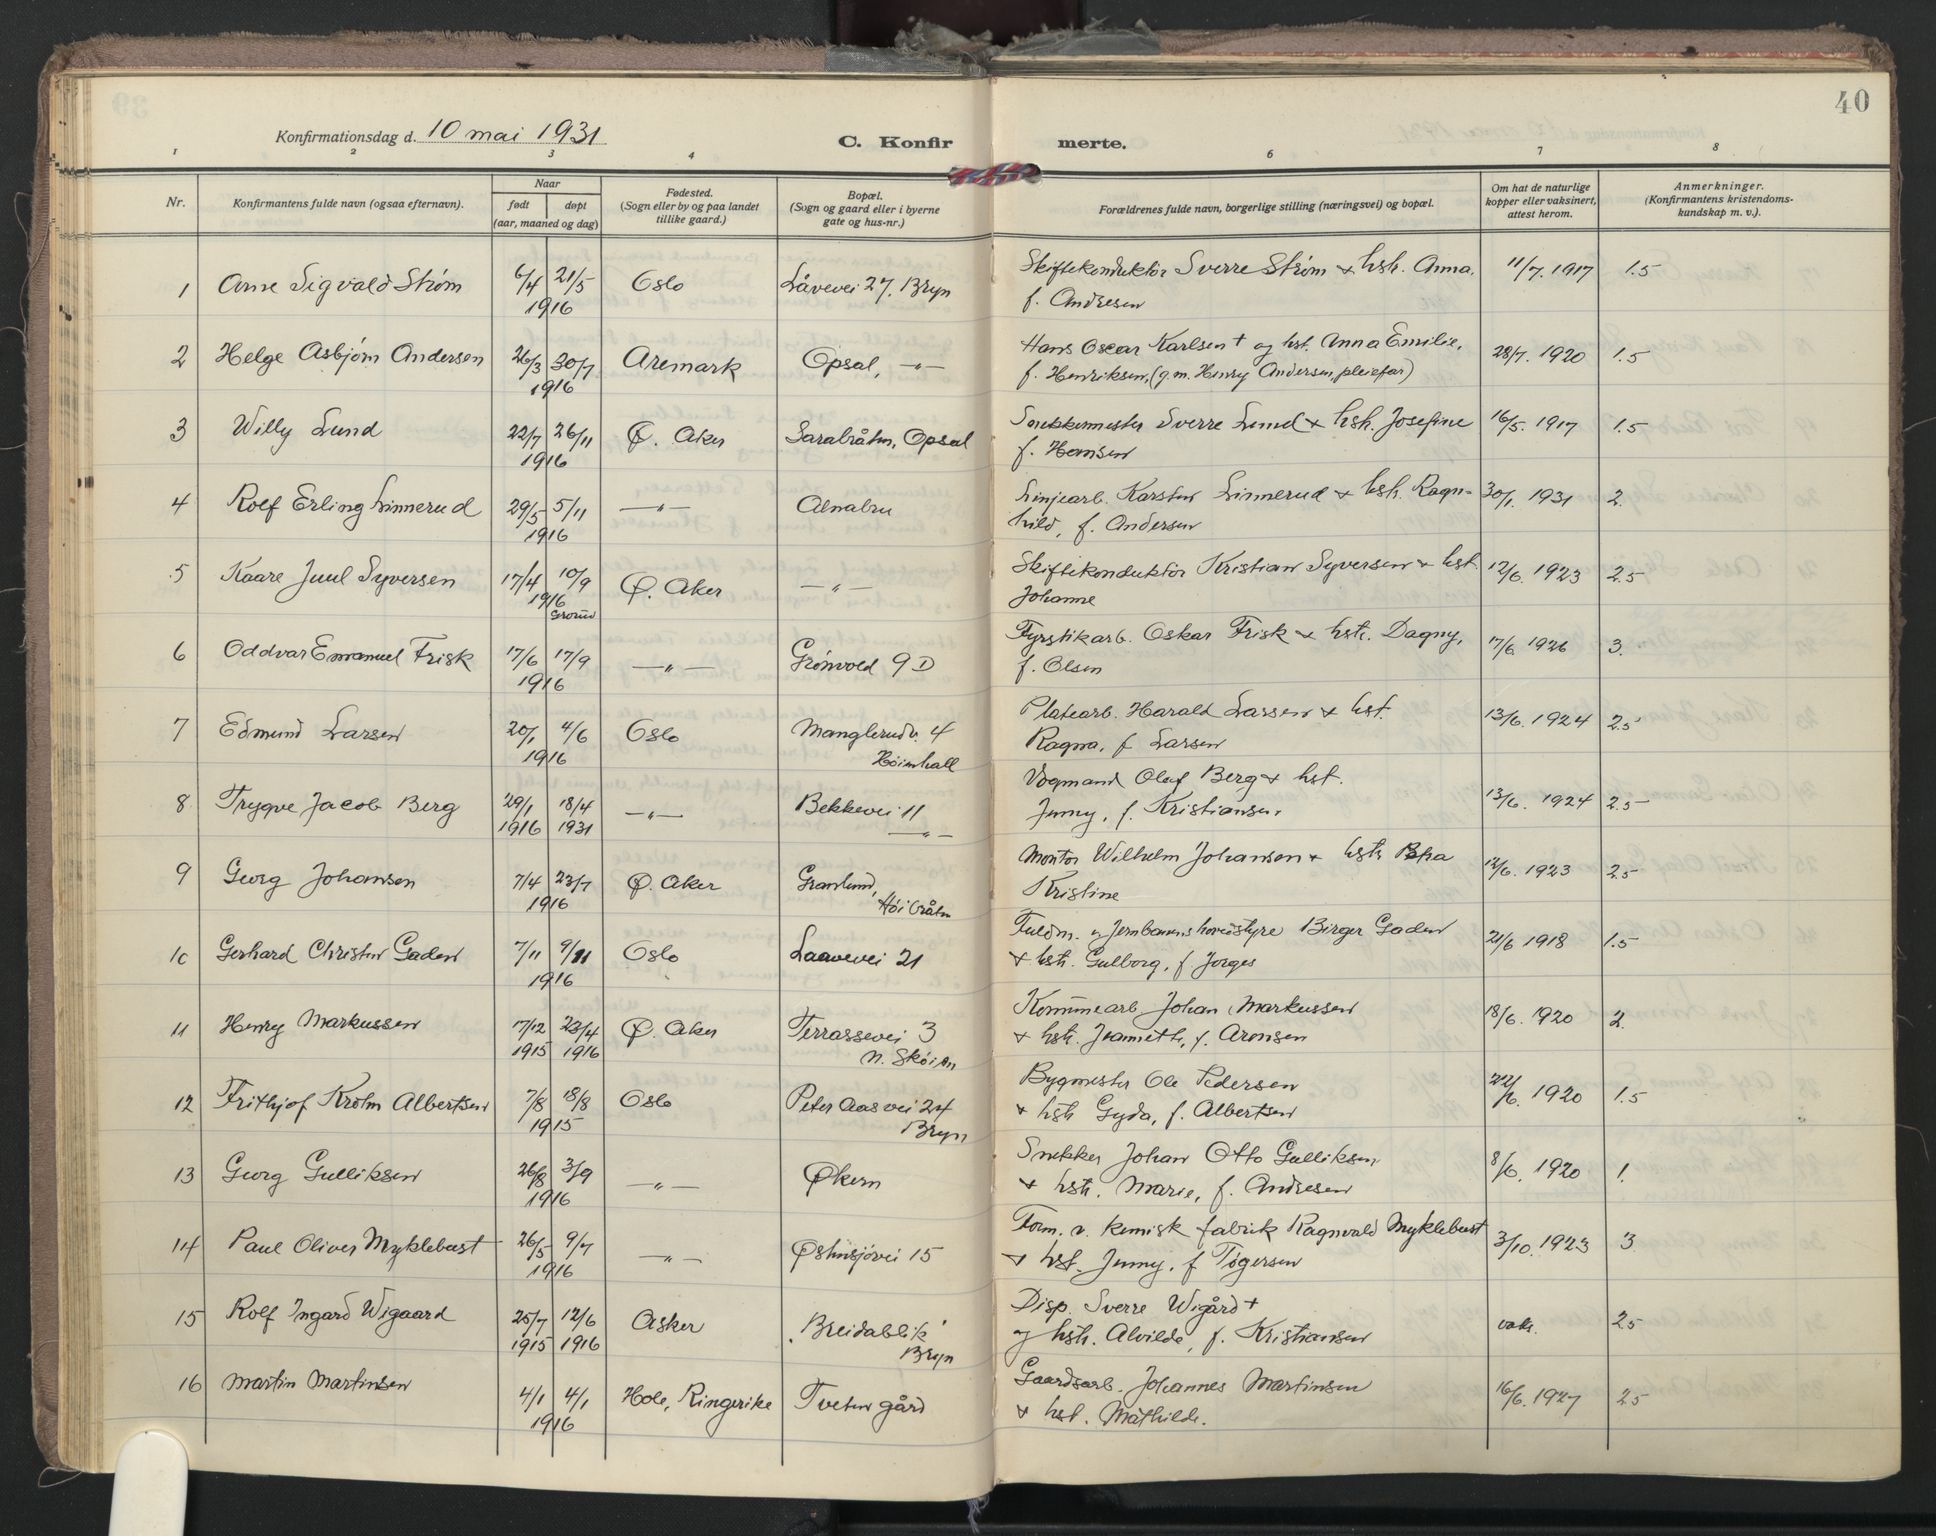 40
Konfirmationsdag d. 10 mai 1931
C. Konfir merte.
1 2 3 4 6 7 8
Nr.
Konfirmantens fulde navn (ogsaa efternavn).
Naar
født døpt
(aar, maaned og dag)
Fødested.
(Sogn eller by og paa landet
tillike gaard.)
Bopæl.
(Sogn og gaard eller i byerne
gate og hus-nr.)
Forældrenes fulde navn, borgerlige stilling (næringsvei) og bopæl.
Om hat de naturlige
kopper eller vaksinert,
attest herom.
Anmerkninger.
(Konfirmantens kristendoms-
kundskap m. v.).
1 Arne Sigvald Strøm 6/4 21/5 1916 Oslo Låvevei 27, Bryn Skiftekonduktör Sverre Strøm + hsh. Anna, 11/7. 1917 1.5
f. Andresen
2 Helge Asbjørn Andersen 26/3 30/7 1916 Aremark Opsal, —"— Hans Oscar Karlsen + og hst. Anna Emilie, 28/7. 1920 1.5
f. Henriksen, (g.m. Henry Andersen, pleiefar)
3 Willy Lund 22/7 26/11 1916 Ø. Aker Sarabråtn, Opsal Snekkermester Sverre Lund + hsh. Josefine 16/5. 1917 1.5
f. Hansen
4 Rolf Erling Linnerud 29/5 5/11 1916 —"— Alnabru Linjearb. Karsten Linnerud + hsh. Ragn- 30/1. 1931 2.
hild, f. Andersen
5 Kaare Juul Syversen 17/4 10/9 1916 Grorud Ø. Aker —"— Skiftekonduktör Kristian Syversen + hst. 12/6. 1923 2.5
Johanne
6 Oddvar Emanuel Frisk 17/6 17/9 1916 —"— Grönvold 9 D Fyrstikarb. Oskar Frisk + hstr. Dagny, 17/6 1926 3.
f. Olsen
7 Edmund Larsen 20/1 4/6 1916 Oslo Manglerudv. 4 Platearb. Harald Larsen + hst. 13/6. 1924 2.5
Høienhall Ragna, f. Larsen
8 Trygve Jacob Berg 29/1 1916 18/4 1931 —"— Bekkevei 11 —"— Vogmand Olaf Berg + hst. 13/6. 1924 2.5
Jenny, f. Kristiansen
9 Georg Johansen 7/4 23/7 1916 Ø. Aker Granlund, Montør Wilhelm Johansen + hstr. 12/6. 1923 2.5
Høibråtn Kristine
10 Gerhard Christen Gaden 7/11 9/11 1916 Oslo Laavevei 21 Fuldm. v Jernbanens hovedstyre Birger Gaden 21/6 1918 1.5
+ hstr. Gulborg, f. Jorges
11 Henry Markussen 17/12 1915 23/4 1916 Ø. Aker Terrassevei 3 Kommunearb Johan Markussen 18/6. 1920 2.
N. Skøien + hstr. Jeanneth, f. Aronsen
12 Frithjof Krohn Albertsen 7/8 18/8 1915 Oslo Peter Aasvei 24 Bygmester Ole Pedersen 22/6. 1920 1.5
Bryn + hstr Gyda, f. Albertsen
13 Georg Gulliksen 26/8 3/9 1916 —"— Økern Snekker Johan Otto Gulliksen 8/6. 1920 1.
+ hstr. Marie, f. Andresen
14 Paul Oliver Myklebust 26/5 9/7 1916 —"— Østensjövei 15 Form. v. kemisk fabrik Ragnvald Myklebust 3/10. 1923 3.
+ hst. Jenny, f. Tøgersen
15 Rolf Ingard Wigaard 25/7 1915 12/6 1916 Asker "Breidablik" Disp. Sverre Wigård + vaks. 2.5
Bryn og hstr. Alvilde, f. Kristiansen
16 Martin Martinsen 4/1 4/1 1916 Hole, Ringerike Tveten gård Gaardsarb. Johannes Martinsen 16/6. 1927 2.5
+ hst. Mathilde.